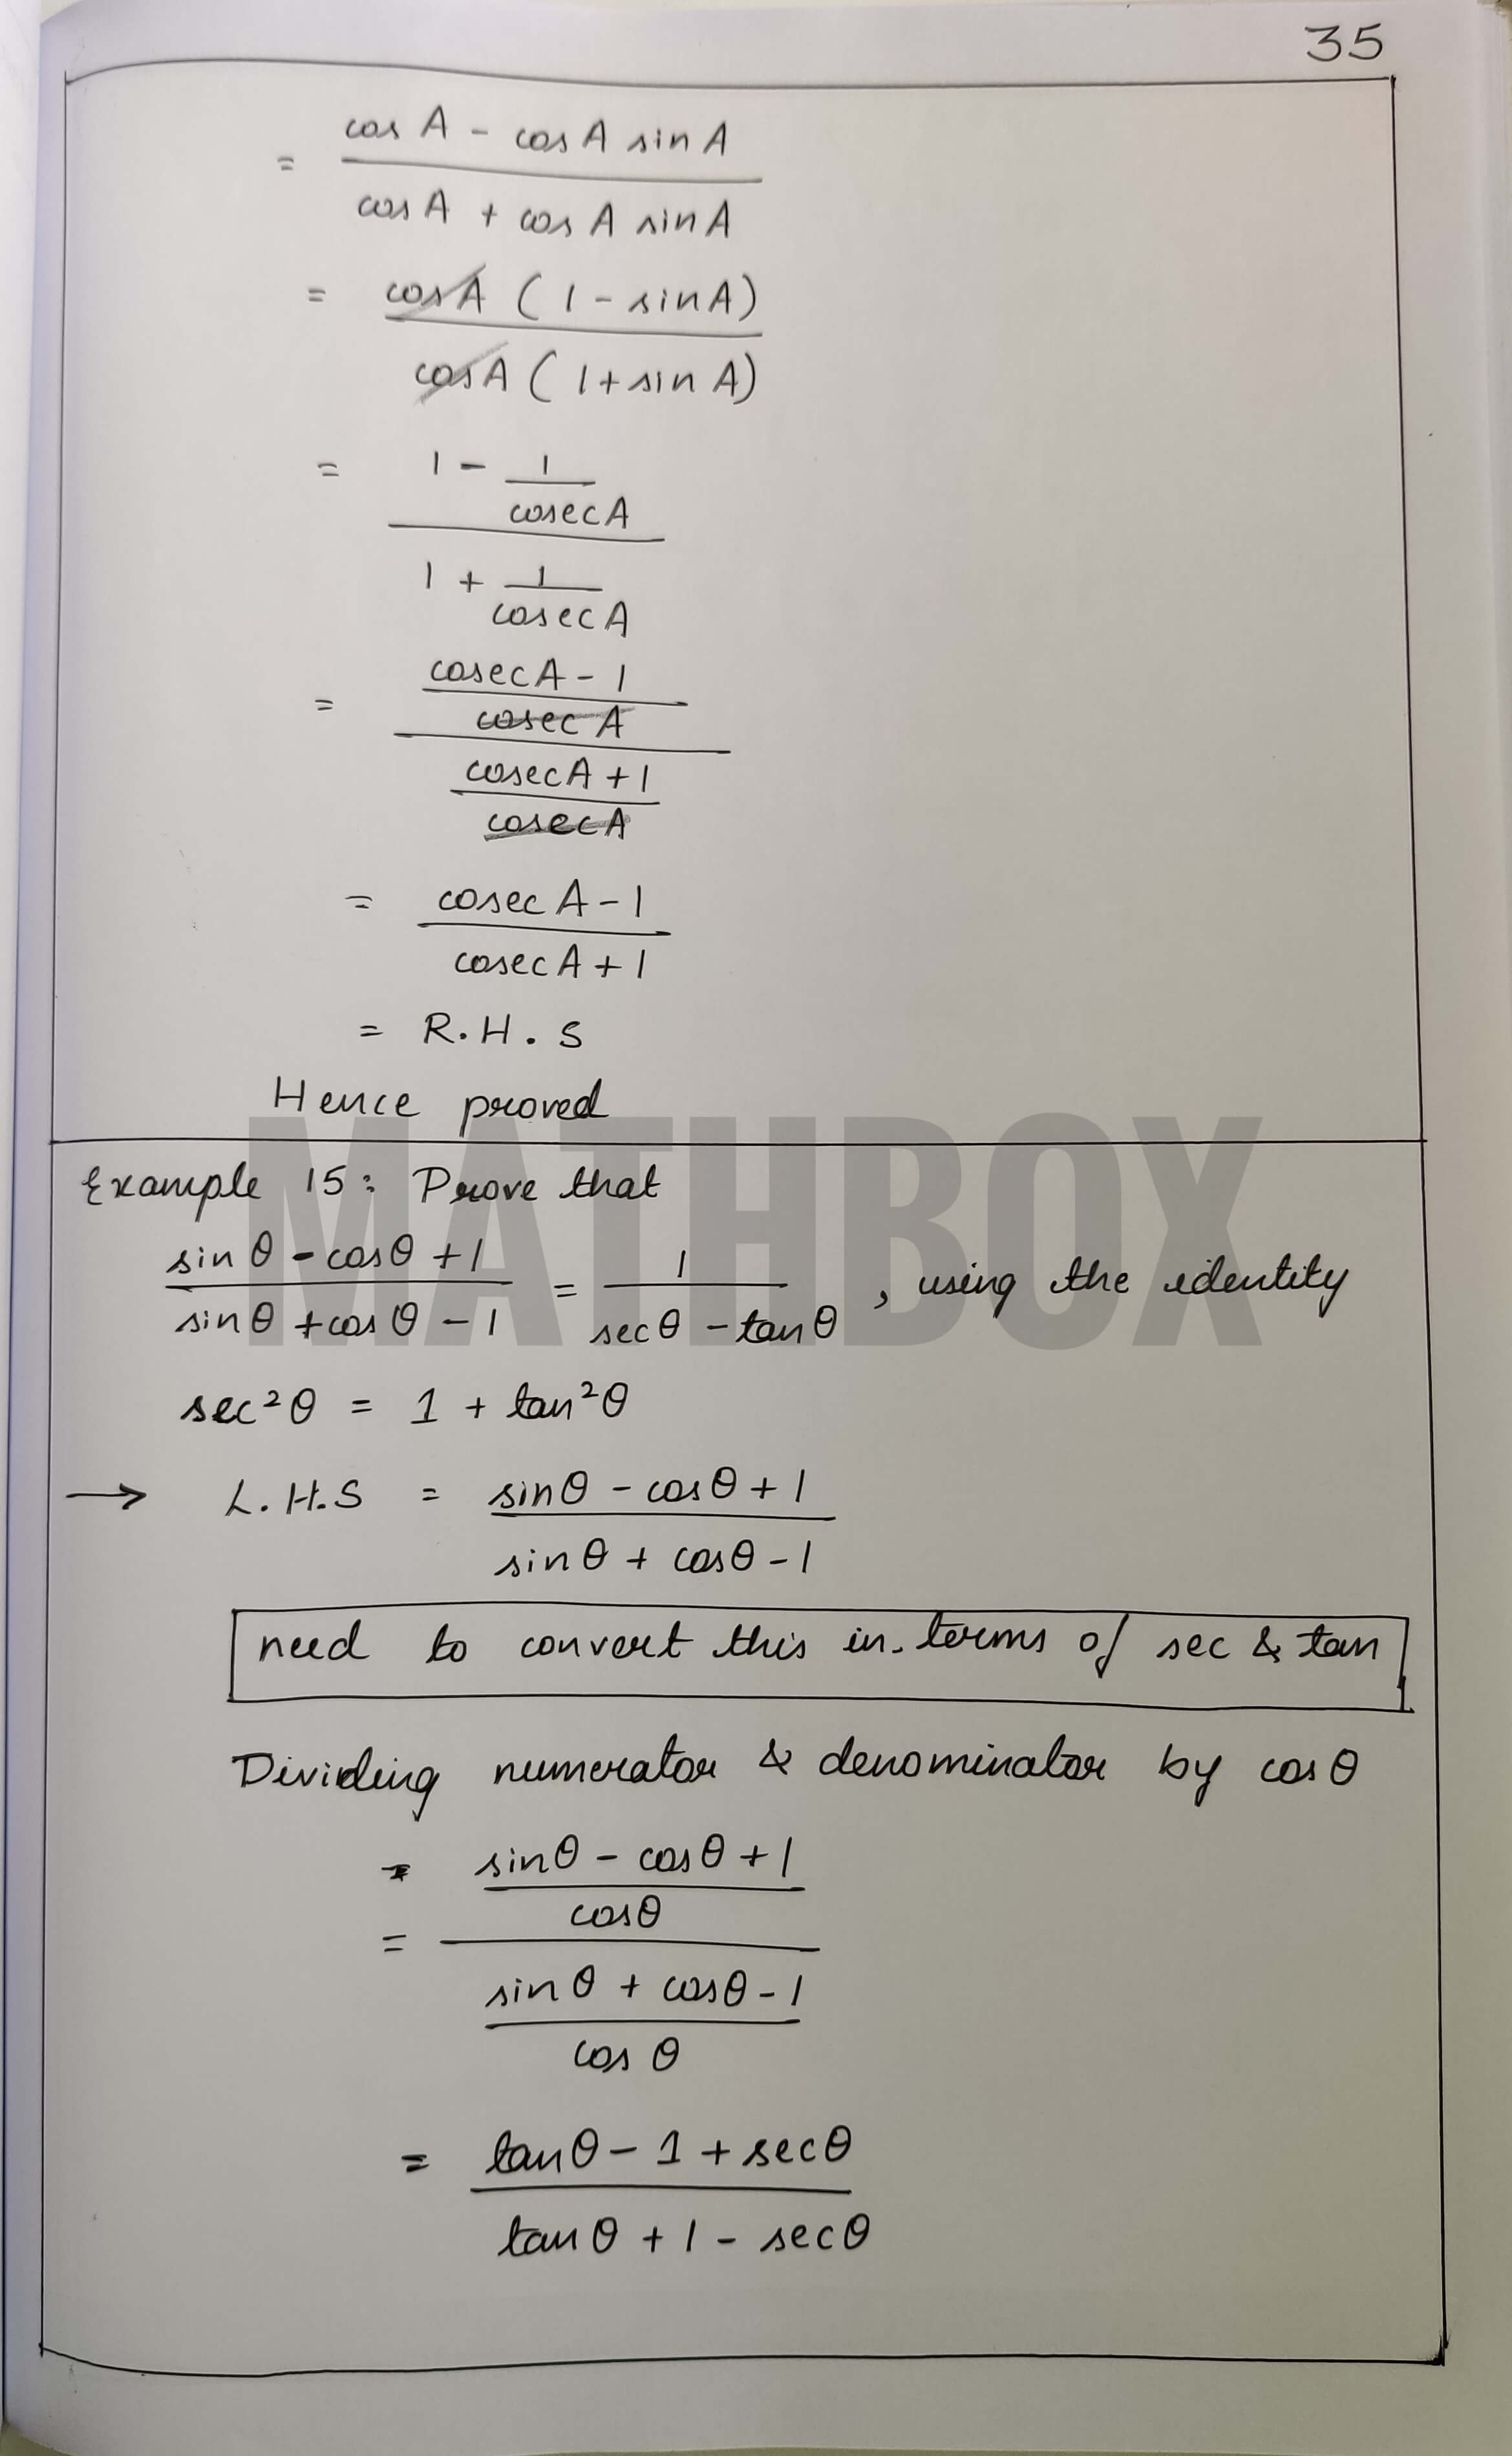 35
= cos A - cos A sin A
cos A + cos A sin A
= cosA ( 1 - sinA)
cosA ( 1 + sin A)
= 1 - 1
cosecA
1 + 1
cosecA
cosecA - 1
= cosec A
cosecA + 1
cosecA
= cosec A - 1
cosecA + 1
= R.H.S
Hence proved
MATHBOX
Example 15: Prove that
sin θ - cosθ + 1 = 1 , using the identity
sinθ + cos θ - 1 secθ - tanθ
sec²θ = 1 + tan²θ
→ L.H.S = sinθ - cosθ + 1
sinθ + cosθ - 1
need to convert this in terms of sec & tan
Dividing numerator & denominator by cosθ
sinθ - cosθ + 1
cosθ
=
sinθ + cosθ - 1
cos θ
= tanθ - 1 + secθ
tanθ + 1 - secθ